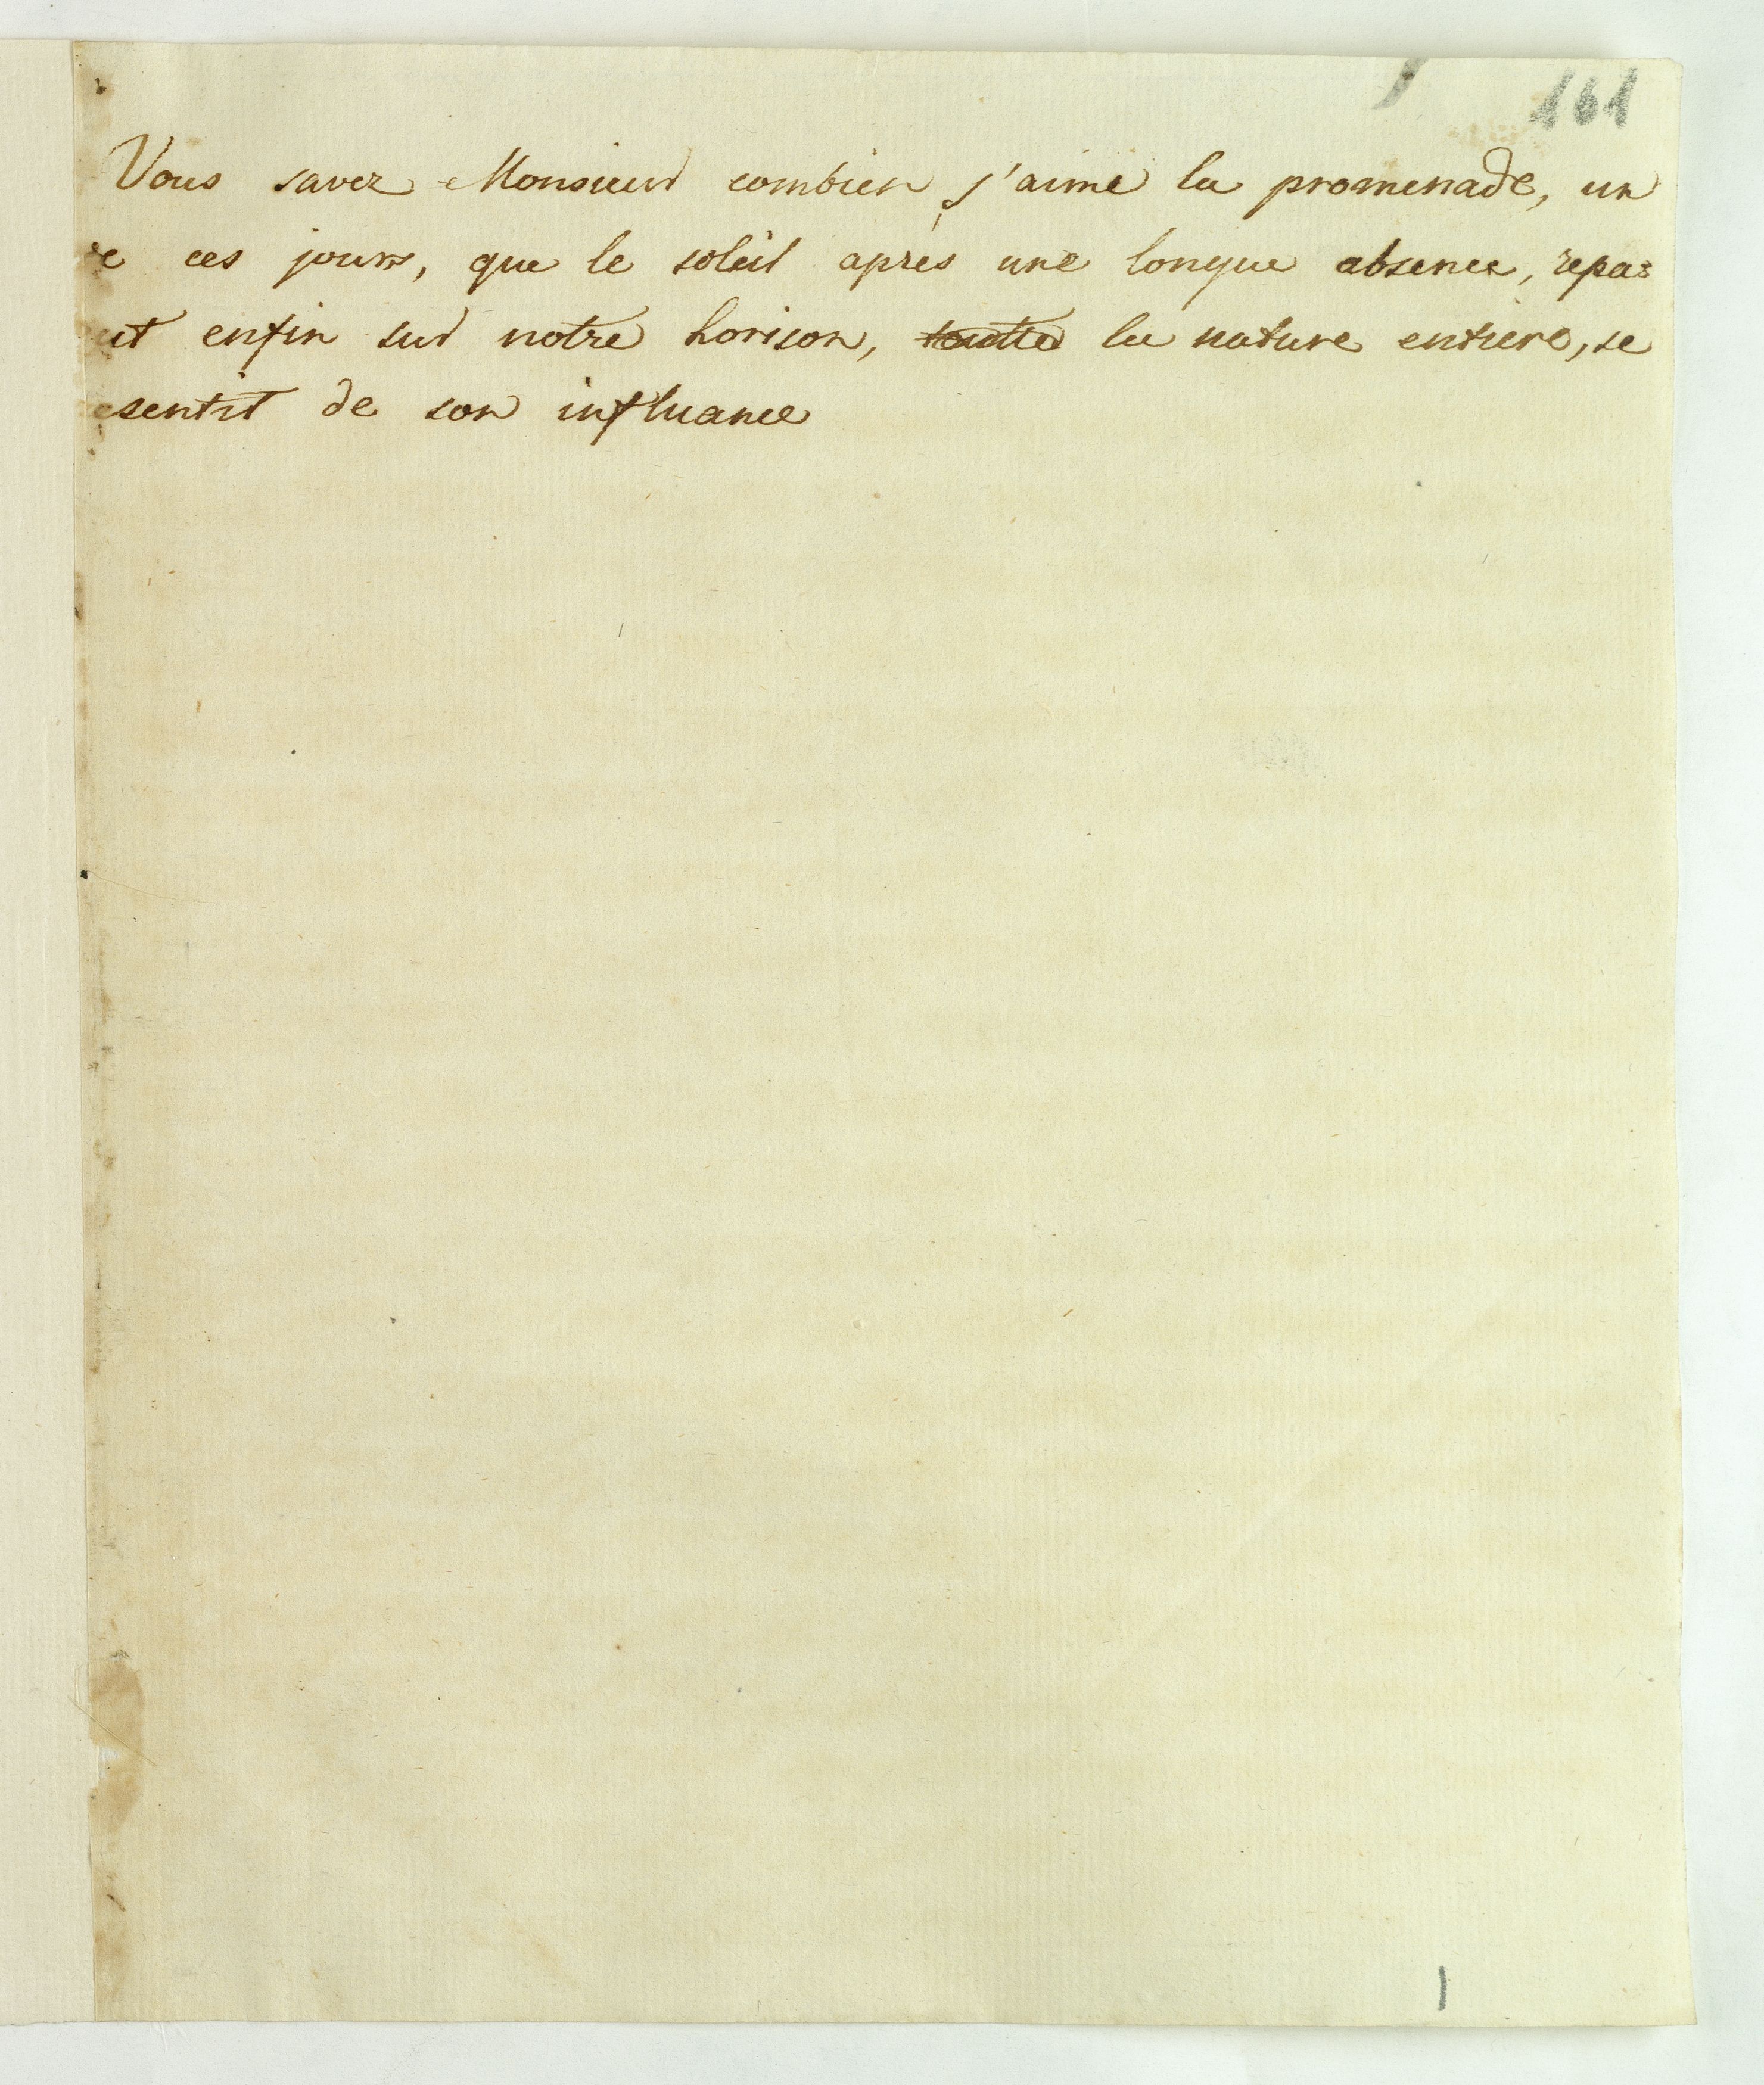 161
Vous savez Monsieur combien j'aime la promenade, un
de ces jours, que le soleil apres une longue absence, repa=
rut enfin sur notre horison, toutte la nature entiere, se
resentit de son influance